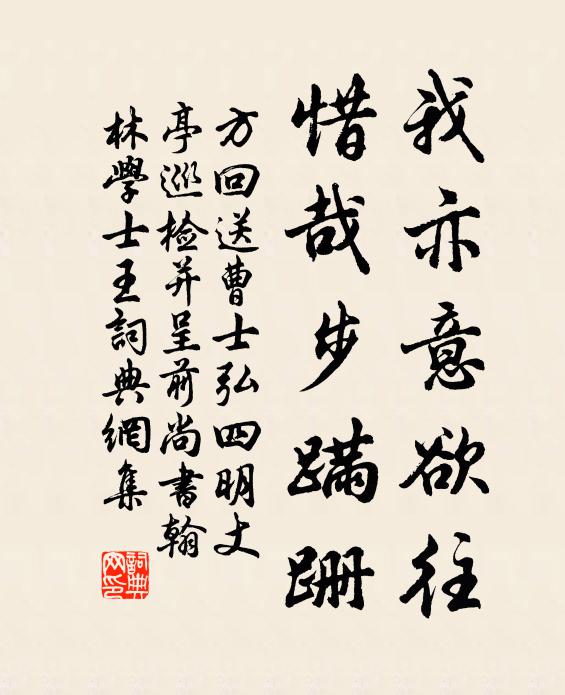 我亦意欲往
惜哉步蹣跚
方回送曹士弘四明丈
亭巡检并呈前尚書翰
林學士王詞典網集
詞典网印